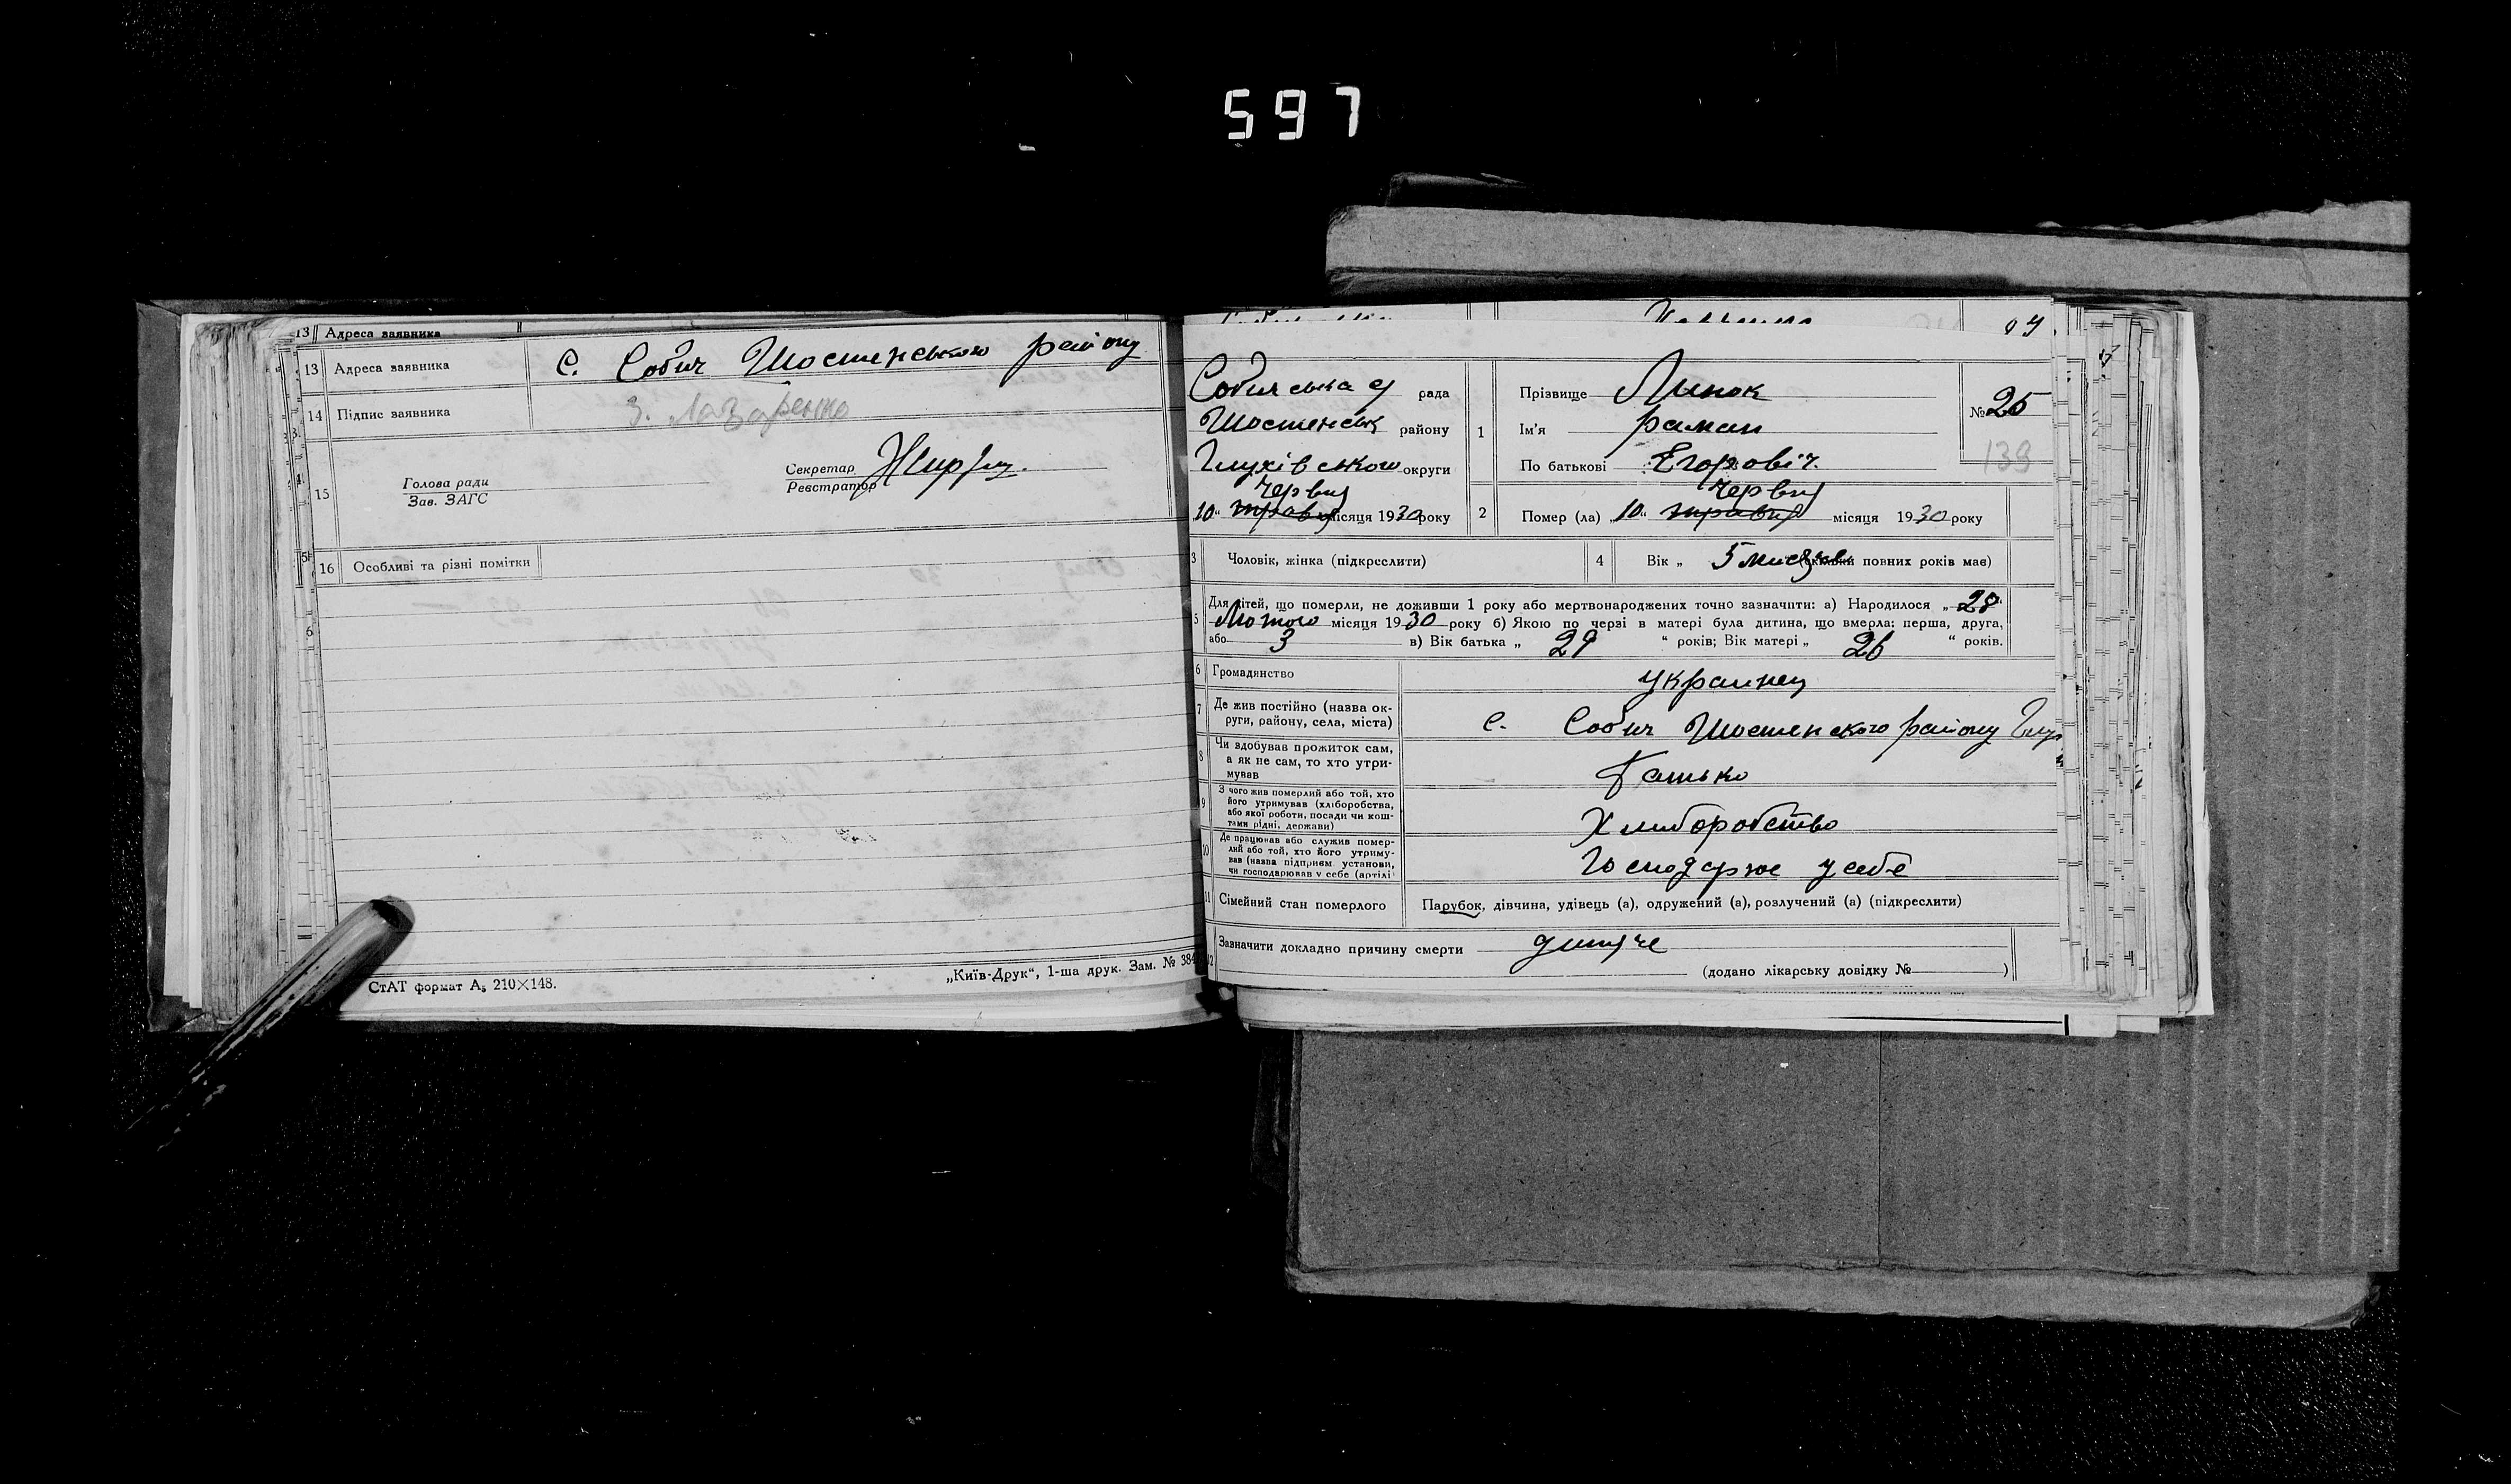 597
13 Адреса заявника
13 Адреса заявника С. Собич Шостенського району
14 Підпис заявника З. Лазаренко
15 Голова ради
Зав. ЗАГС
Секретар
Реєстратор
16 Особливі та різні помітки
СтАТ формат А₅ 210×148.
„Київ-Друк“, 1-ша друк. Зам. № 384
Собичська с рада
Шостенськ району
Глухівського округи
червц
„10“ травц місяця 1930 року
1 Прізвище Линок
Ім'я раман
По батькові Егоровіч.
№ 25
139
червц
2 Помер (ла) „10“ травц місяця 1930 року
3 Чоловік, жінка (підкреслити)
4 Вік „ 5 мисяцев (скільки повних років має)
5 Для дітей, що померли, не доживши 1 року або мертвонароджених точно зазначити: а) Народилося „28“
Лютого місяця 1930 року б) Якою по черзі в матері була дитина, що вмерла: перша, друга,
або 3 в) Вік батька „ 29 “ років; Вік матері „ 26 “ років.
6 Громадянство украинец
7 Де жив постійно (назва ок-
руги, району, села, міста) с. Собич Шостенского району Глух
8 Чи здобував прожиток сам,
а як не сам, то хто утри-
мував Батько
9 З чого жив померлий або той, хто
його утримував (хліборобства,
або якої роботи, посади чи кош-
тами рідні, держави) Хлиборобство
10 Де працював або служив помер-
лий або той, хто його утриму-
вав (назва підприєм. установи,
чи господарював у себе (артілі) Господарює у себе
11 Сімейний стан померлого Парубок, дівчина, удівець (а), одружений (а), розлучений (а) (підкреслити)
12 Зазначити докладно причину смерти дитяче
(додано лікарську довідку № )